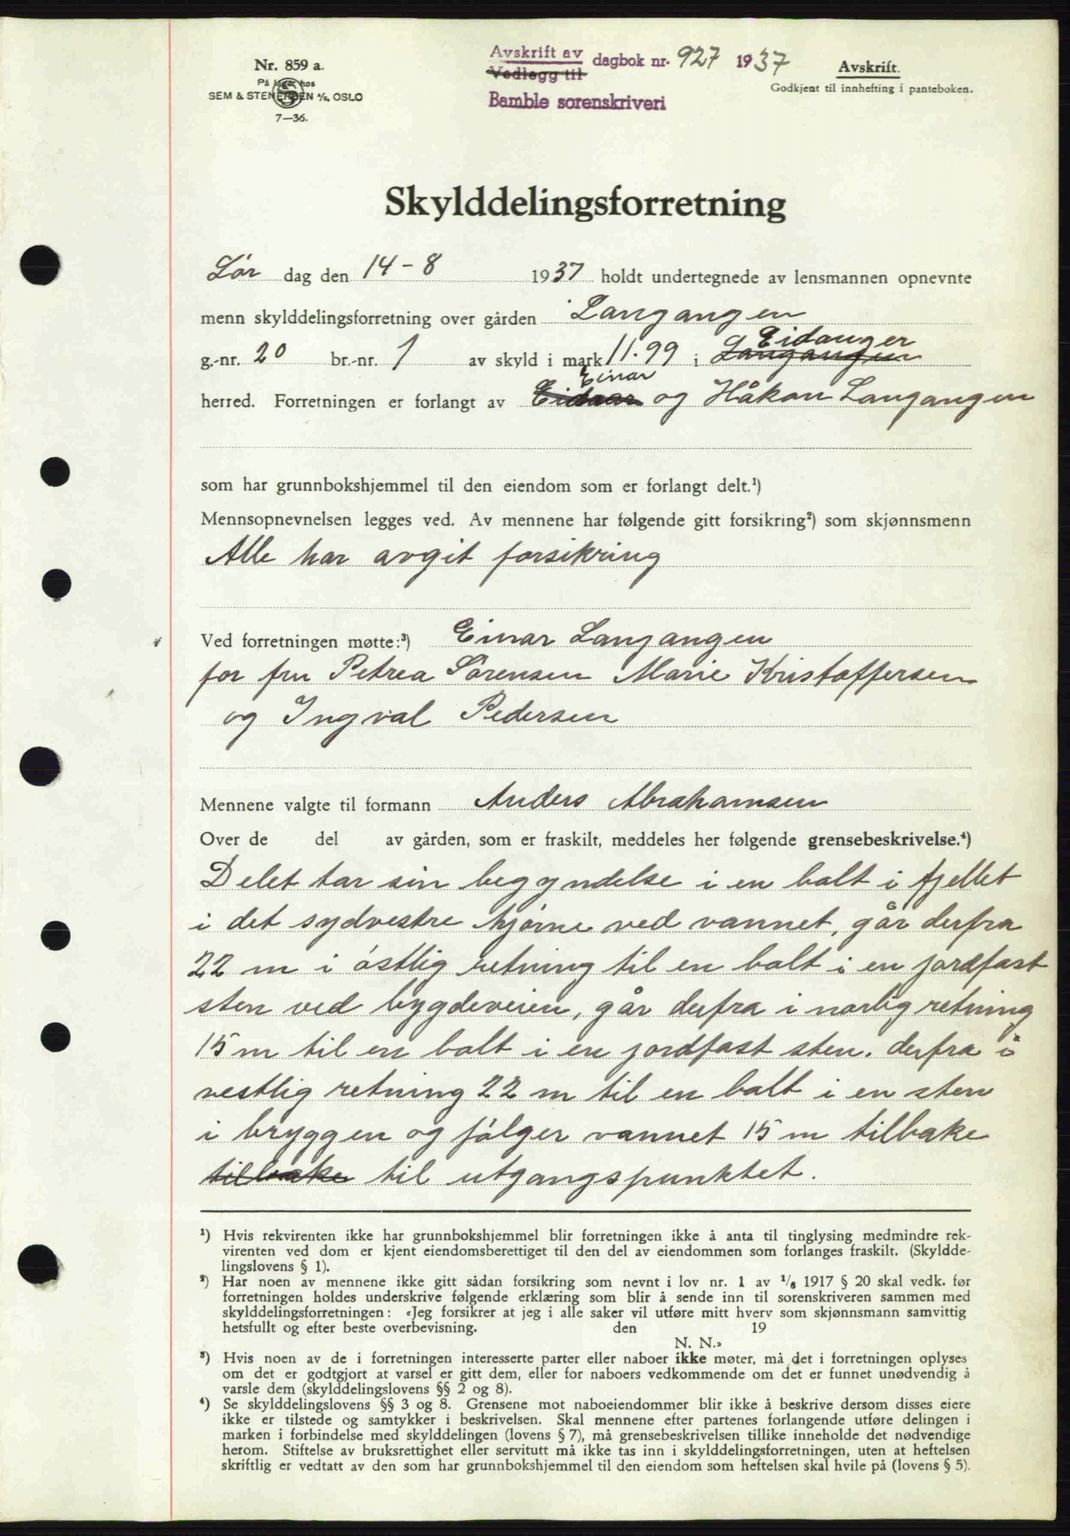 Nr. 859 a.
På lager hos
SEM & STENERSEN A/S, OSLO
7—36.
Avskrift av
Vedlegg til
dagbok nr. 927 1937
Bamble sorenskriveri
Avskrift.
Godkjent til innhefting i panteboken.
Skylddelingsforretning
Lør dag den 14-8 1937 holdt undertegnede av lensmannen opnevnte
menn skylddelingsforretning over gården Langangen
Eidanger
g.-nr. 20 br.-nr. 1 av skyld i mark 11.99 i Langangen
Einar
herred. Forretningen er forlangt av Eidaar og Håkon Langangen
som har grunnbokshjemmel til den eiendom som er forlangt delt.¹)
Mennsopnevnelsen legges ved. Av mennene har følgende gitt forsikring²) som skjønnsmenn
Alle har avgit forsikring
Ved forretningen møtte:³) Einar Langangen
for fru Petrea Sørensen Marie Kristoffersen
og Ingval Pedersen
Mennene valgte til formann Anders Abrahamsen
Over de del av gården, som er fraskilt, meddeles her følgende grensebeskrivelse.⁴)
Delet tar sin begyndelse i en bolt i fjellet
i det sydvestre hjørne ved vannet, går derfra
22 m i østlig retning til en bolt i en jordfast
sten ved bygdeveien, går derfra i norlig retning
15 m til en bolt i en jordfast sten. derfra i
vestlig retning 22 m til en bolt i en sten
i bryggen og følger vannet 15 m tilbake
tilbake til utgangspunktet.
¹) Hvis rekvirenten ikke har grunnbokshjemmel blir forretningen ikke å anta til tinglysing medmindre rek-
virenten ved dom er kjent eiendomsberettiget til den del av eiendommen som forlanges fraskilt. (Skyldde-
lingslovens § 1).
²) Har noen av mennene ikke gitt sådan forsikring som nevnt i lov nr. 1 av 1/6 1917 § 20 skal vedk. før
forretningen holdes underskrive følgende erklæring som blir å sende inn til sorenskriveren sammen med
skylddelingsforretningen: «Jeg forsikrer at jeg i alle saker vil utføre mitt hverv som skjønnsmann samvittig
hetsfullt og efter beste overbevisning. den 19
N. N.»
³) Hvis noen av de i forretningen interesserte parter eller naboer ikke møter, må det i forretningen oplyses
om det er godtgjort at varsel er gitt dem, eller for naboers vedkommende om det er funnet unødvendig å
varsle dem (skylddelingslovens §§ 2 og 8).
⁴) Se skylddelingslovens §§ 3 og 8. Grensene mot naboeiendommer blir ikke å beskrive dersom disses eiere
ikke er tilstede og samtykker i beskrivelsen. Skal mennene efter partenes forlangende utføre delingen i
marken i forbindelse med skylddelingen (lovens § 7), må grensebeskrivelsen tillike inneholde det nødvendige
herom. Stiftelse av bruksrettighet eller servitutt må ikke tas inn i skylddelingsforretningen, uten at heftelsen
skriftlig er vedtatt av den som har grunnbokshjemmel til den eiendom som heftelsen skal hvile på (lovens § 5).